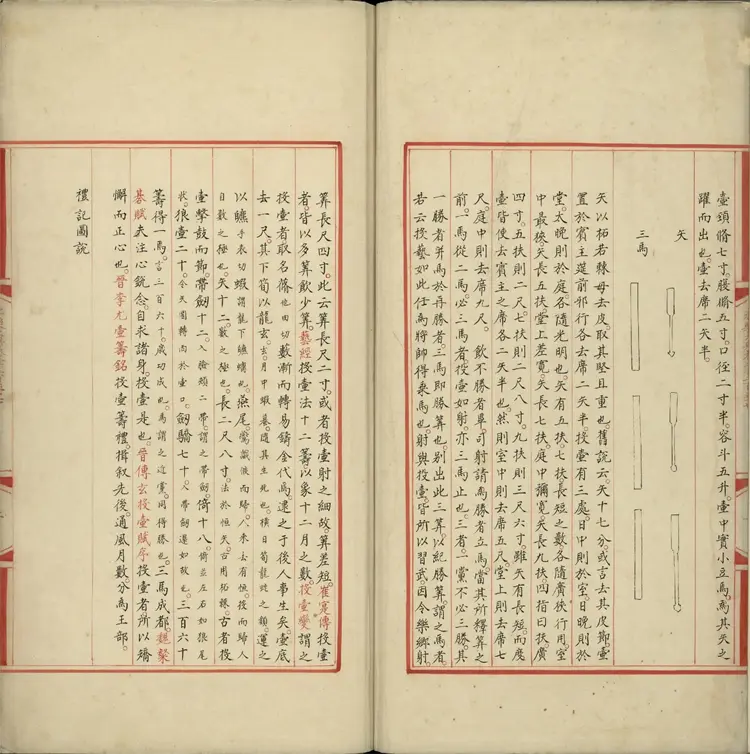 壺頭脩七寸。腹脩五寸。口徑二寸半。容斗五升。壺中實小豆焉。為其矢之
躍而出也。壺去席二矢半。
矢
三馬
矢以柘若棘母去皮。取其堅且重也。舊說云。矢大七分。或言去其皮節。壺
置於賓主筵前邪行各去席二矢半投壺有三處日中則於室。日晚則於
堂。太晚則於庭。各隨光明也。矢有五扶。七扶。長短之數各隨廣狹行用。室
中最狹。矢長五扶。堂上差寬。矢長七扶。庭中彌寬。矢長九扶。四指曰扶。廣
四寸。五扶則二尺。七扶則二尺八寸。九扶則三尺六寸。雖矢有長短。而度
壺皆使去賓主之席各二矢半也。然則室中則去席五尺。堂上則去席七
尺。庭中則去席九尺。飲不勝者畢。司射請為勝者立馬。當其所釋算之
前。一馬從二馬。必三馬者。投壺如射。亦三馬止也。三者。一黨不必三勝。其
一勝者并馬於再勝者。三馬即勝算也。別出此三算。以紀勝算。謂之馬者。
若云投藝如此任為將帥得乘馬也。射與投壺。皆所以習武。因令樂鄉射。
算長尺四寸。此云算長二寸。或者投壺射之細。故算差短。崔寔傳投壺
者。皆以多算飲少算。藝經投壺法十二籌。以象十二月之數。投壺變謂之
投壺者取名條。他由切數漸而轉易。鑄金代焉。逮之于後人事生矣。壺底
去一尺。其下筍以龍玄。玄月中蝦蟇。隨其生死也。横日筍龍蛇之類。運之
以䗶手衣切蝦謂龍下䗶蠣也。燕尾。鴛戲液而歸。八來去有恒。投而歸人
日數之極也。矢十二。數之極也。長二尺八寸。法於恒矢。古用柘棘。古者投
壺擊鼓而節。帶劔十二。入檢頬二帶。謂之帶劔。倚十八。倚並左右如狼尾
狀。狼壺二十。令矢圓轉而於壺口。劔驕七十。入帶劔還如故也。三百六十
籌得一馬。言三百六十。歲功成也。馬謂之近黨。同得勝也。三馬成都。趙槩
棊賦夫注心銳念。自求諸身。投壺是也。晉傳玄投壺賦序投壺者所以矯
懈而正心也。晉李尤壺籌銘投壺籌禮。揖叙先後。通風月數。分為王部。
禮記圖說